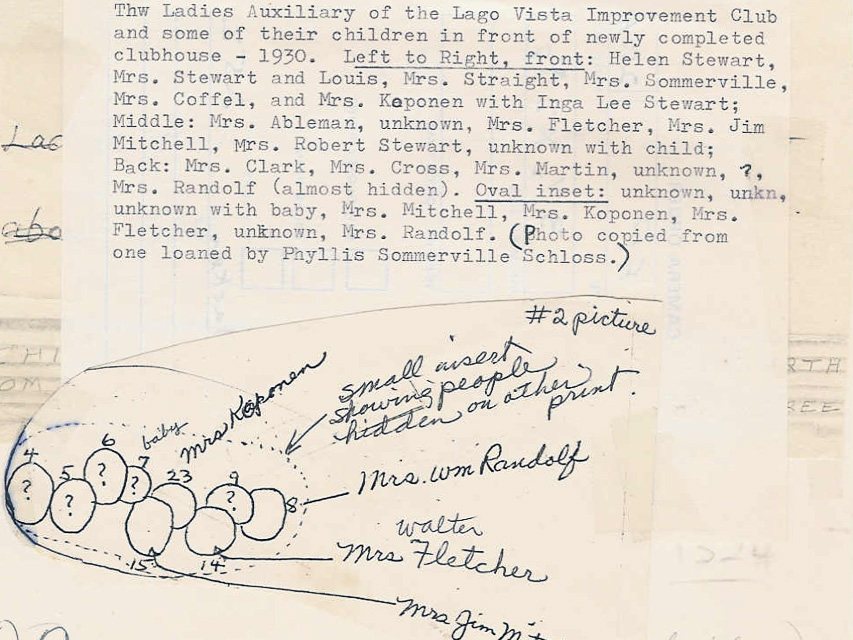 Thw Ladies Auxiliary of the Lago Vista Improvement Club
and some of their children in front of newly completed
clubhouse - 1930. Left to Right, front: Helen Stewart,
Mrs. Stewart and Louis, Mrs. Straight, Mrs. Sommerville,
Mrs. Coffel, and Mrs. Koponen with Inga Lee Stewart;
Middle: Mrs. Ableman, unknown, Mrs. Fletcher, Mrs. Jim
Mitchell, Mrs. Robert Stewart, unknown with child;
Back: Mrs. Clark, Mrs. Cross, Mrs. Martin, unknown, ?,
Mrs. Randolf (almost hidden). Oval inset: unknown, unkn,
unknown with baby, Mrs. Mitchell, Mrs. Koponen, Mrs.
Fletcher, unknown, Mrs. Randolf. (Photo copied from
one loaned by Phyllis Sommerville Schloss.)
#2 picture
small insert
showing people
hidden on other
print.
Mrs Koponen
baby
4 5 6 7 23 9 8
? ? ? ? ?
Mrs. Wm Randolf
Walter
Mrs Fletcher
15 14
Mrs Jim